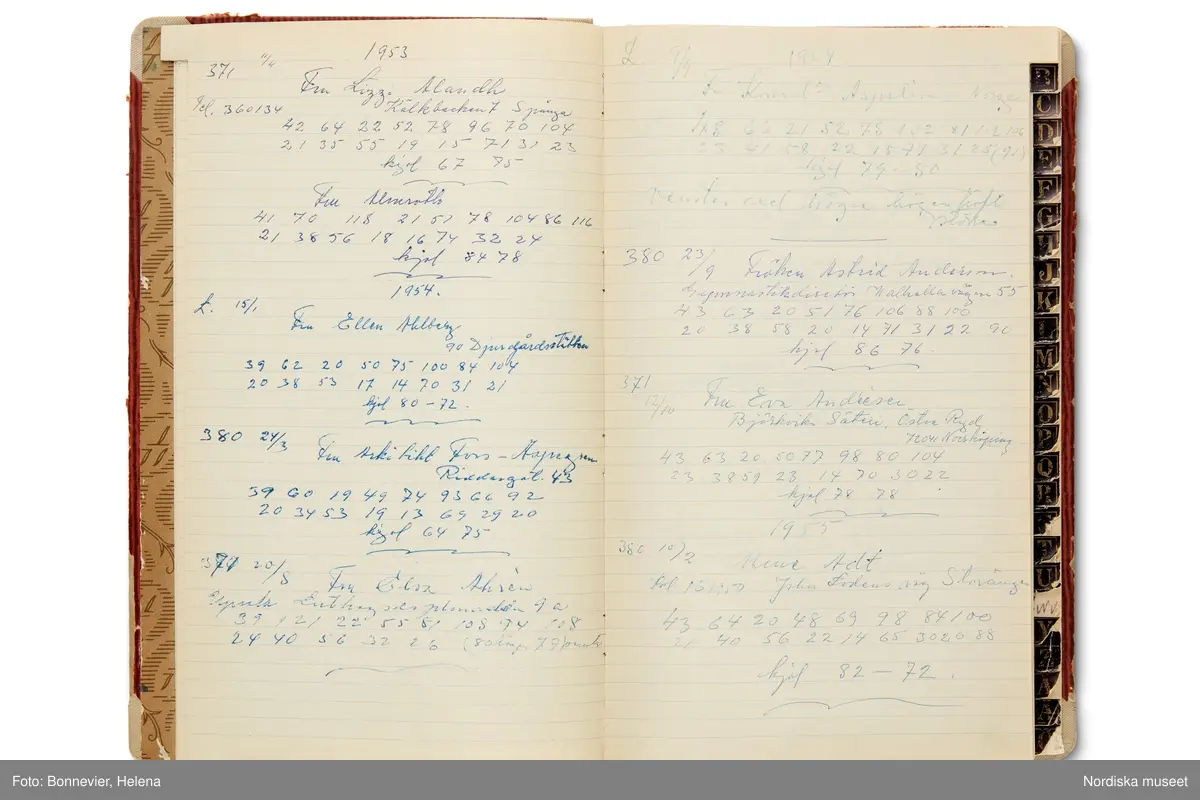 1953
371 11/4
Fru Lizzi Alandh
Tel. 360134 Kälkbacken 7 Spånga
42 64 22 52 78 96 70 104
21 35 55 19 15 71 31 23
kjol 67 75
Fru Almroth
41 70 118 21 51 78 104 86 116
21 38 56 18 16 74 32 24
kjol 84 78
1954.
L. 15/1.
Fru Ellen Ahlberg
90 Djurgårdsslätten
39 62 20 50 75 100 84 104
20 38 53 17 14 70 31 21
kjol 80 – 72.
380 24/3 Fru Arkitekt Fors –
Riddargat. 43
39 60 19 49 74 93 66 92
20 34 53 19 13 69 29 20
kjol 64 75
371 20/8 Fru Elsa Ahrén
9 a
39 121 22 55 81 108 94 108
24 40 56 32 26
L 9/9 1954
Fru Norge
21 52 78
23 41 58 22 15 71 31 25 (91)
kjol 79 – 80
högra
380 23/9 Fröken Astrid Anderson.
Gymnastikdirektör Valhallavägen 55
43 63 20 51 76 106 88 100
20 38 58 20 14 71 31 22 90
kjol 86 76.
371
12/10 Fru Eva Andersen
Björkvik Säteri, Östra Ryd
Norrköping
43 63 20 50 77 98 80 104
23 38 59 23 14 70 30 22
kjol 78 78
1955
386 10/2 Adt
Storängen
43 64 20 48 69 98 84 100
21 40 56 22 14 65 30 20 88
kjol 82 – 72.
B
C
D
E
F
G
H
J
K
L
M
N
O
P
Q
R
T
U
V
Å
Ä
Foto: Bonnevier, Helena
Nordiska museet